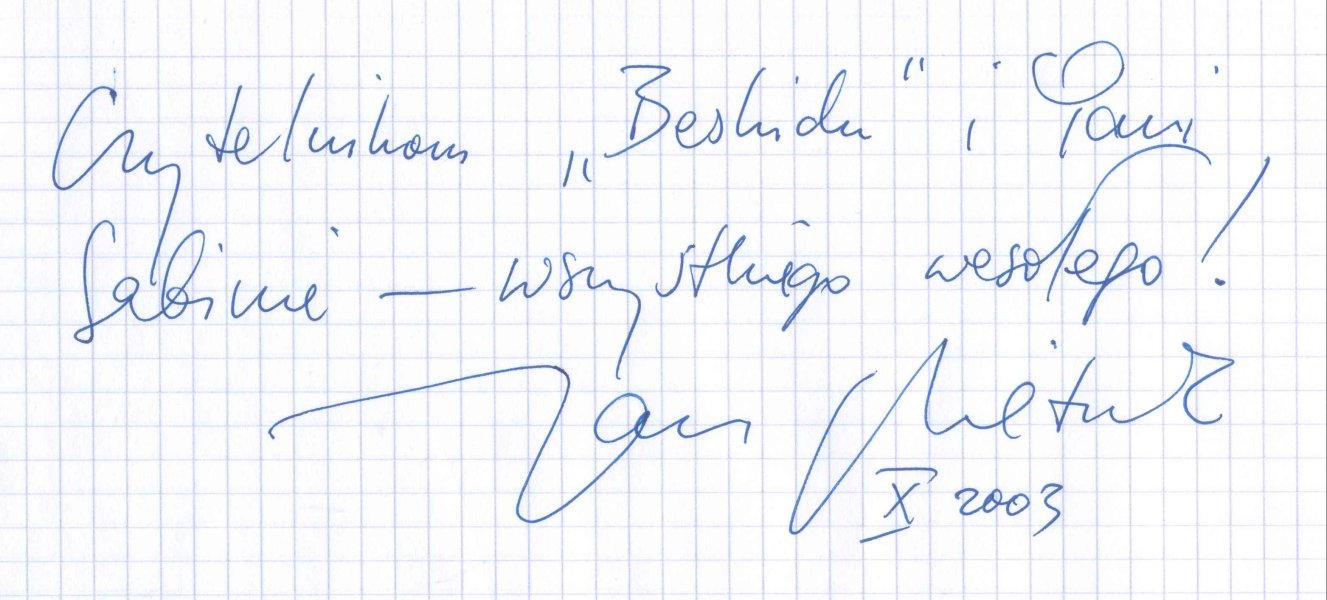 Czytelnikom „Beskidu” i Pani
Sabinie — wszystkiego wesołego!
Jan
X 2003